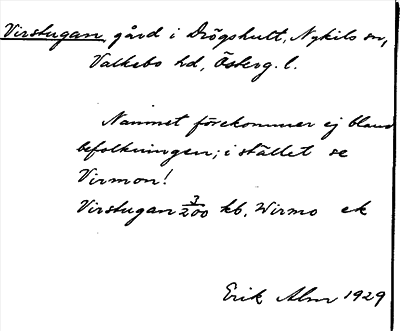 Virstugan gård i Drögshult, Nykils sn,
Valkebo hd, Österg. l.
Namnet förekommer ej bland
befolkningen; i stället se
Virmon!
Virstugan 3/200 kb, Wirmo ek
Erik Alm 1929